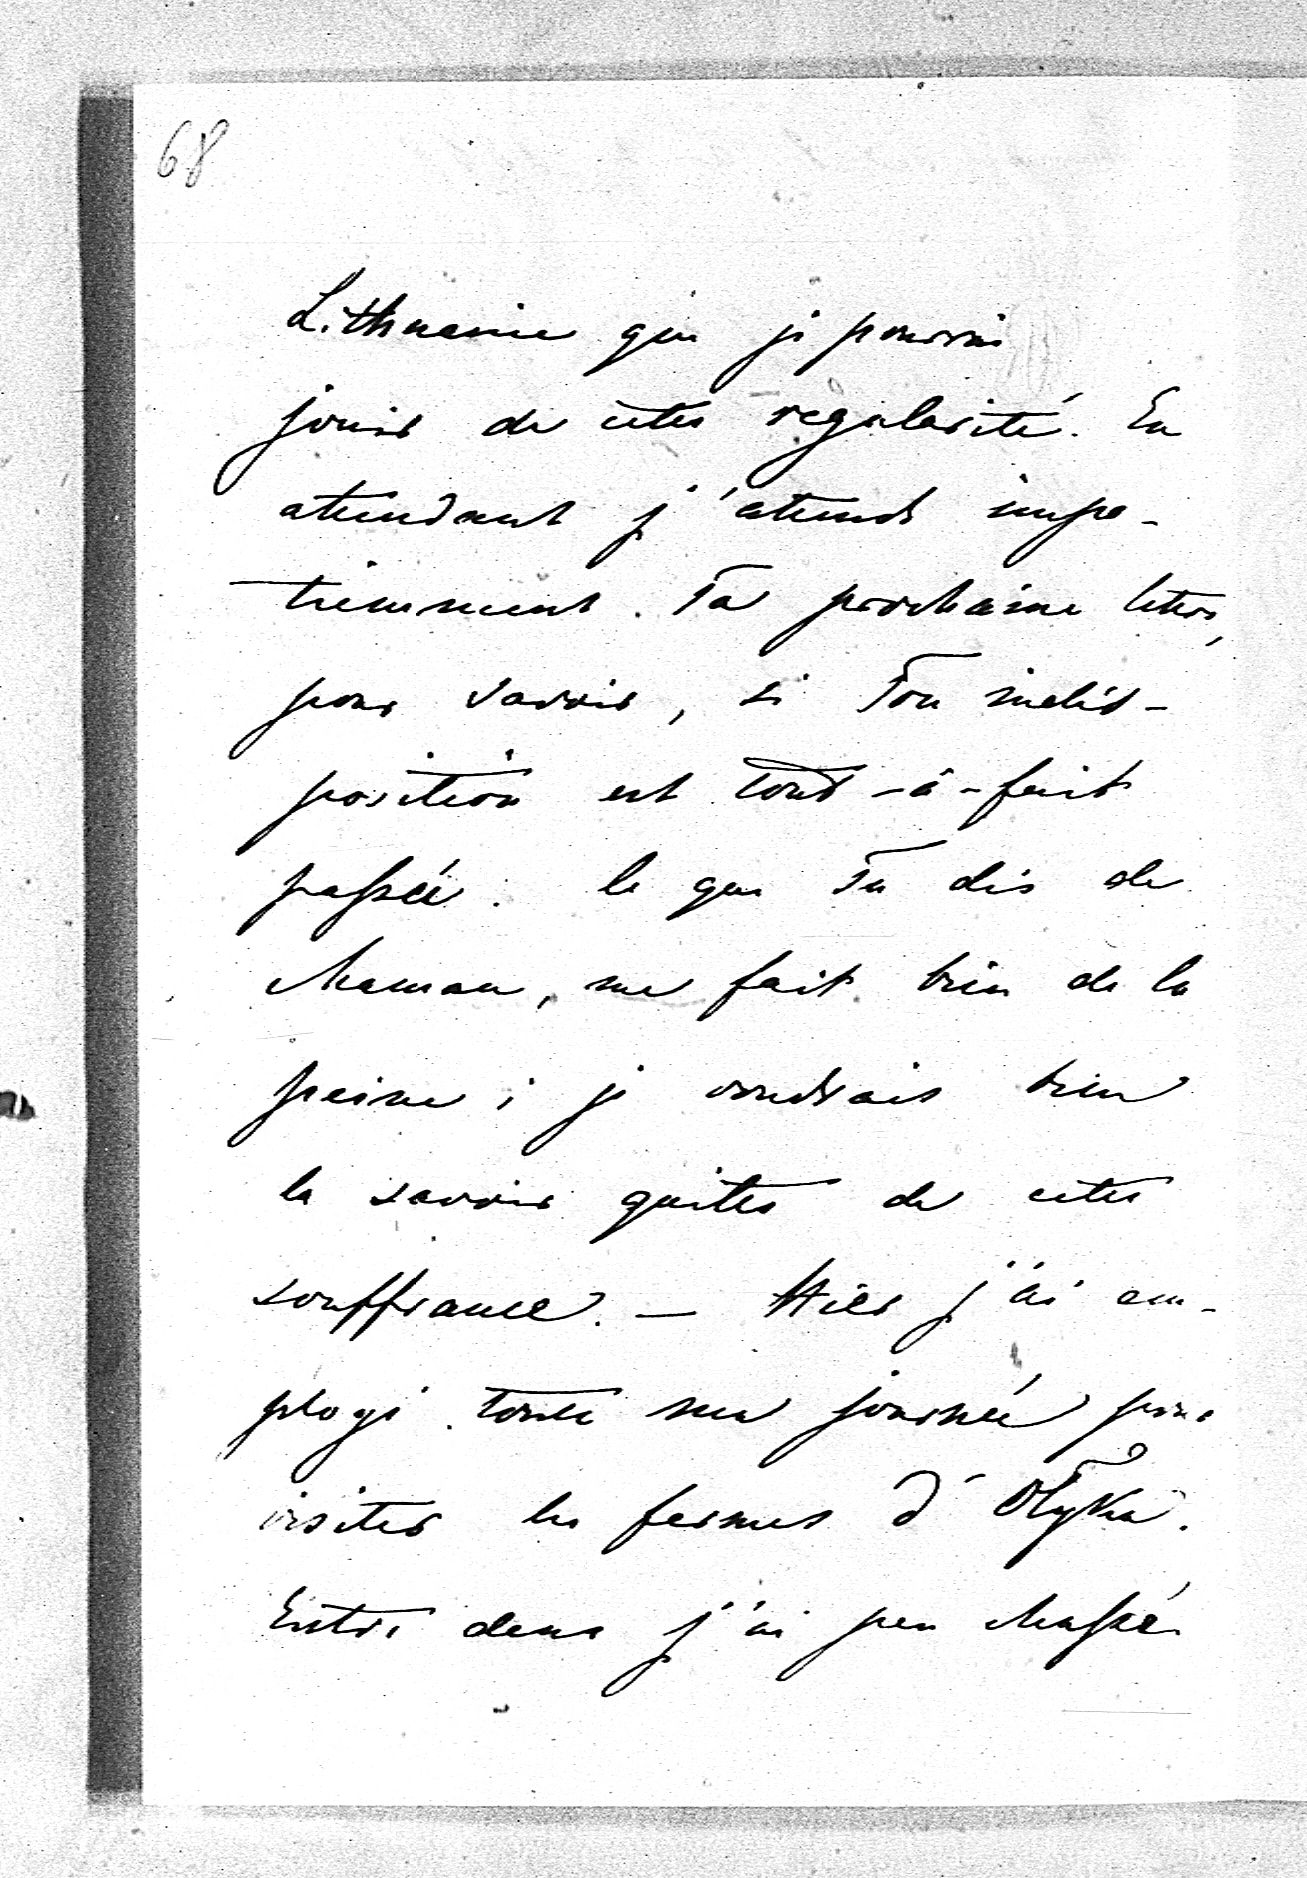 68
Lithuanie que je pourrai
jouir de cette regularité. En
attendant j'attends impa-
tiemment Ta prochaine lettre,
pour savoir, si Ton indis-
position est tout-à-fait
passée. Ce que Tu dis de
Maman, me fait bien de la
peine; je voudrais bien
la savoir quitte de cette
souffrance. — Hier j'ai em-
ployé toute ma journée pour
visiter les fermes d'Ołyka.
Entre deux j'ai peu chassé